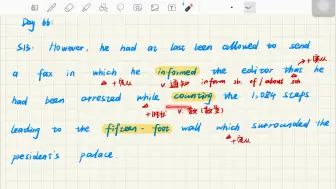 Day 66:
S13: However, he had at last been allowed to send
a fax in which he informed the editor that he
+宾从
△ +宾从 v. 通知 inform sb. of / about sth.
had been arrested while counting the 1,084 steps
△ +时状 v. 数(数量)
leading to the fifteen-foot wall which surrounded the
△ +定从
president's palace.